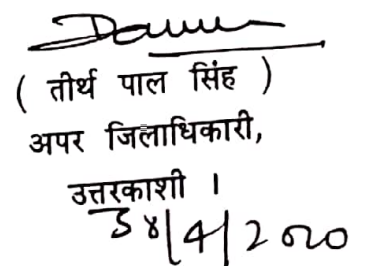 ( तीर्थ पाल सिंह )
अपर जिलाधिकारी,
उत्तरकाशी ।
/4/2020